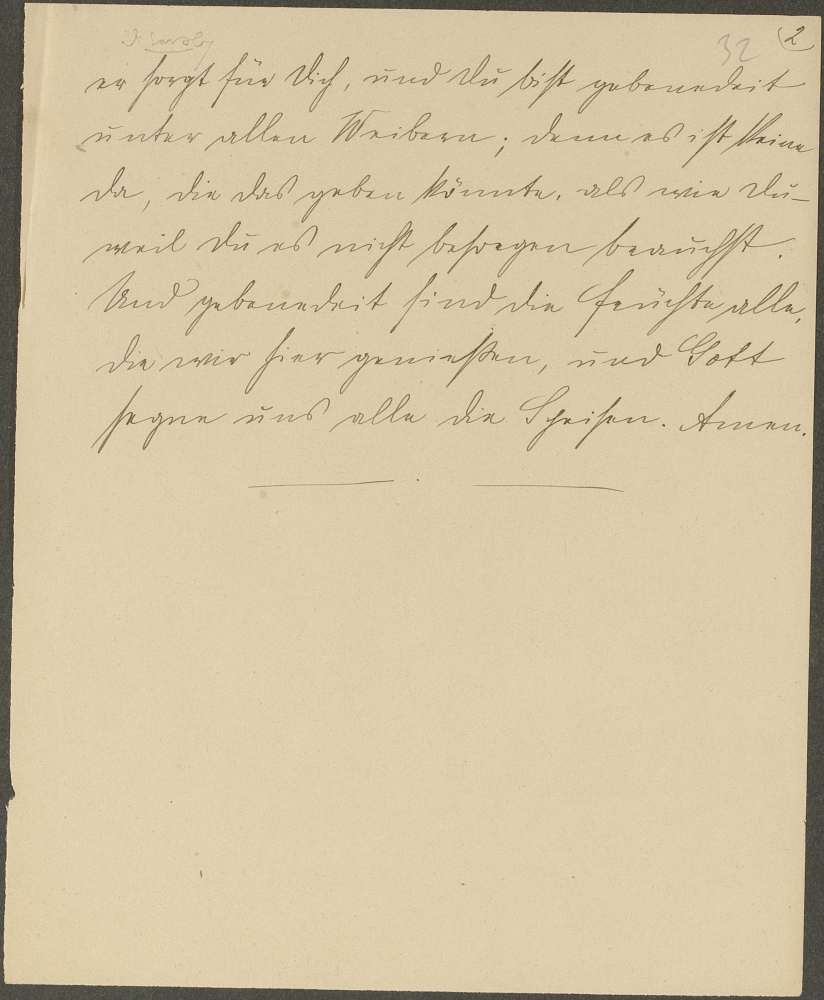 32 2
er sorgt für Dich, und Du bist gebenedeit
unter allen Weibern; denn es ist keine
da, die das geben könnte, als wie Du –
weil Du es nicht besorgen brauchst.
Und gebenedeit sind die Früchte alle,
die wir hier genießen, und Gott
segne uns alle die Speisen. Amen.